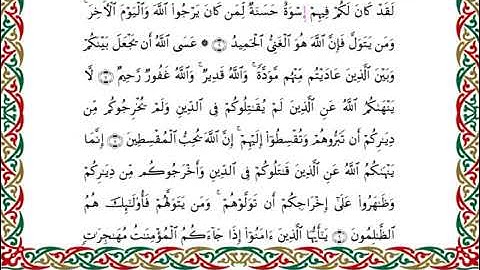 لَقَدْ كَانَ لَكُمْ فِيهِمْ إِسْوَةٌ حَسَنَةٌ لِّمَن كَانَ يَرْجُواْ اللَّهَ وَالْيَوْمَ الْأَخِرَ
وَمَن يَتَوَلَّ فَإِنَّ اللَّهَ هُوَ الْغَنِيُّ الْحَمِيدُ ۞ عَسَى اللَّهُ أَن يَجْعَلَ بَيْنَكُمْ
وَبَيْنَ الَّذِينَ عَادَيْتُم مِّنْهُم مَّوَدَّةً وَاللَّهُ قَدِيرٌ وَاللَّهُ غَفُورٌ رَّحِيمٌ لَّا
يَنْهَىٰكُمُ اللَّهُ عَنِ الَّذِينَ لَمْ يُقَٰتِلُوكُمْ فِي الدِّينِ وَلَمْ يُخْرِجُوكُم مِّن
دِيَٰرِكُمْ أَن تَبَرُّوهُمْ وَتُقْسِطُواْ إِلَيْهِمْ إِنَّ اللَّهَ يُحِبُّ الْمُقْسِطِينَ إِنَّمَا
يَنْهَىٰكُمُ اللَّهُ عَنِ الَّذِينَ قَٰتَلُوكُمْ فِي الدِّينِ وَأَخْرَجُوكُم مِّن دِيَٰرِكُمْ
وَظَٰهَرُواْ عَلَىٰ إِخْرَاجِكُمْ أَن تَوَلَّوْهُمْ وَمَن يَتَوَلَّهُمْ فَأُوْلَٰئِكَ هُمُ
الظَّٰلِمُونَ يَٰأَيُّهَا الَّذِينَ ءَامَنُواْ إِذَا جَاءَكُمُ الْمُؤْمِنَٰتُ مُهَٰجِرَٰتٍ